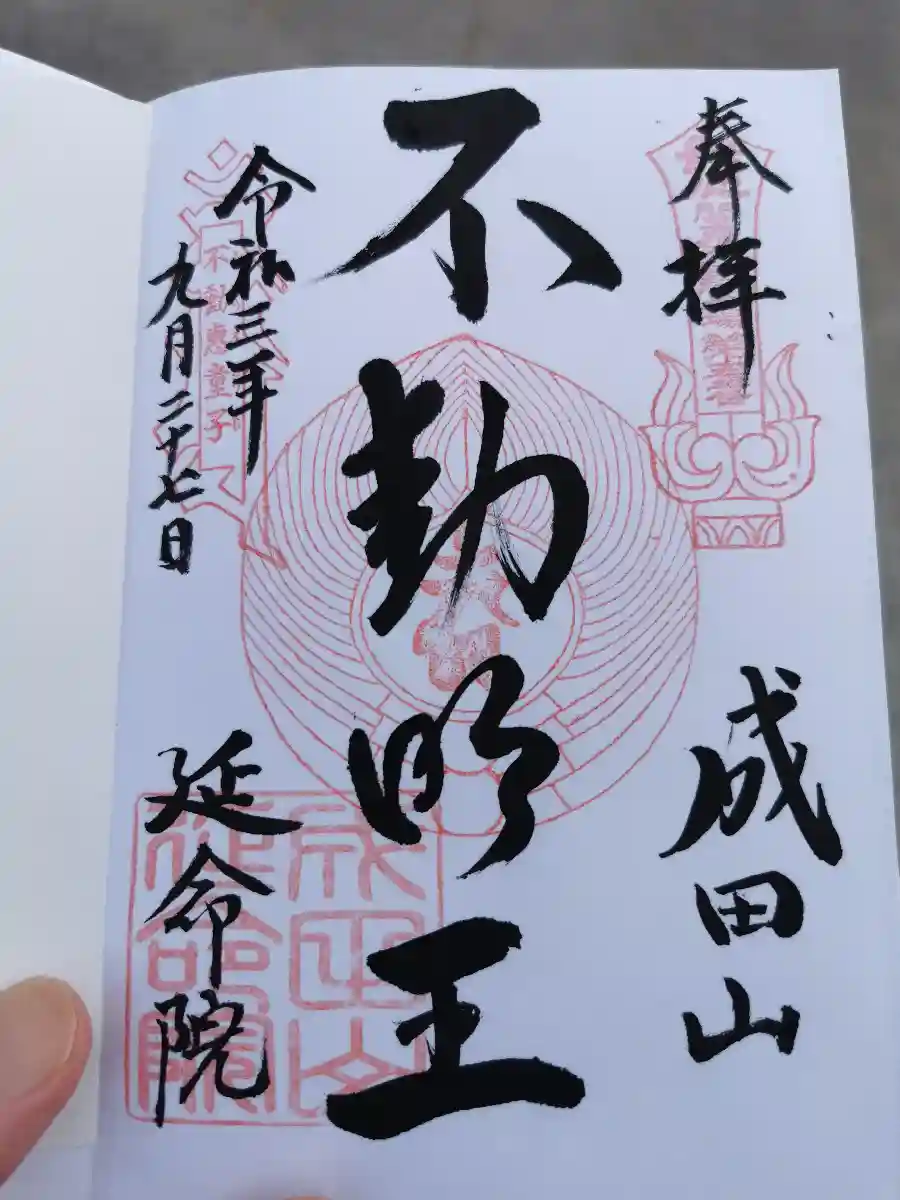 奉拝
成田山
不動明王
令和三年
九月二十七日
延命院
不動恵童子
成田山
延命院